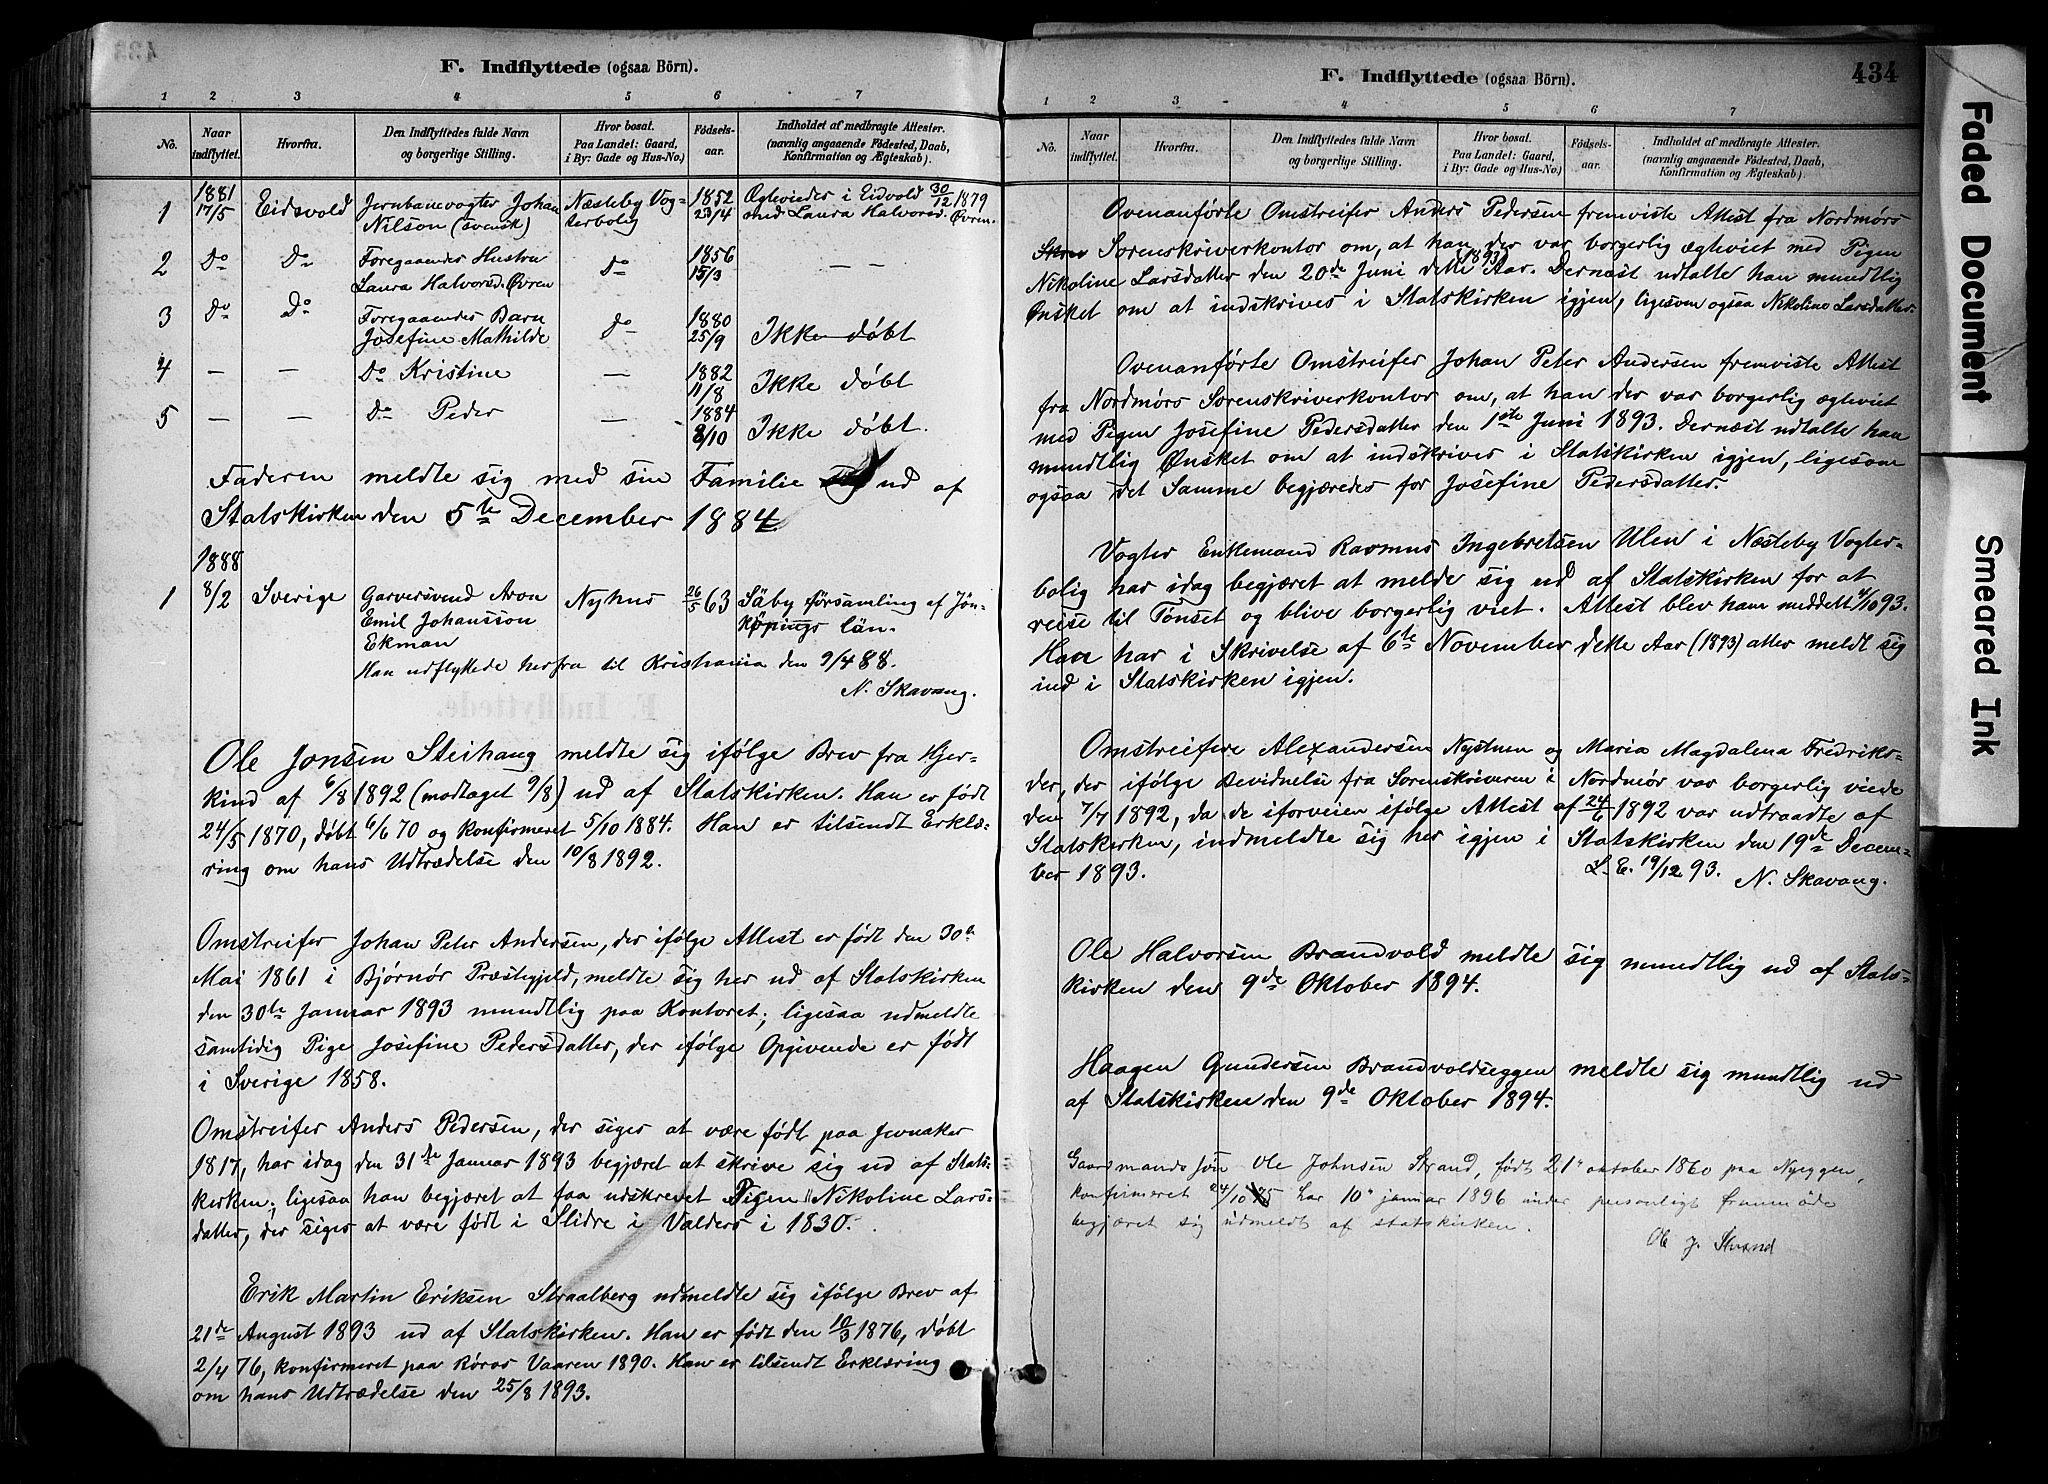 F. Indflyttede (ogsaa Börn).
1 2 3 4 5 6 7
No. Naar indflyttet. Hvorfra. Den Indflyttedes fulde Navn og borgerlige Stilling. Hvor bosat. Paa Landet: Gaard, i By: Gade og Hus-No.) Födsels-aar. Indholdet af medbragte Attester. (navnlig angaaende Födested, Daab, Konfirmation og Ægteskab).
1 1881 17/5 Eidsvold Jernbanevogter Johan Nilson (svensk) Næsteby Vogterbolig 1852 23/4 Ægteviedes i Eidvold 30/12 1879 med Laura Halvorsd. Øvren
2 Do Do Foregaaendes Hustru Laura Halvorsd. Øvren Do 1856 15/3 — —
3 Do Do Foregaaendes Barn Josefine Mathilde Do 1880 25/9 Ikke døbt
4 — — Do Kristine — 1882 11/8 Ikke døbt
5 — — Do Peder — 1884 8/10 Ikke døbt.
Faderen meldte sig med sin Familie ud af
Statskirken den 5te December 1884
1888
1 8/2 Sverige Garversvend Aron Emil Johansson Ekman Nyhus 26/5 63 Säby församling af Jönköpings län.
Han udflyttede herfra til Kristiania den 9/4 88.
N. Skavang.
Ole Jonsen Steihaug meldte sig ifølge Brev fra Hjer-
kind af 6/8 1892 (modtaget 9/8) ud af Statskirken. Han er født
24/5 1870, døbt 6/6 70 og konfirmeret 5/10 1884. Han er tilsendt Erklæ-
ring om hans Udtrædelse den 10/8 1892.
Omstreifer Johan Peter Andersen, der ifølge Attest er født den 30te
Mai 1861 i Bjørnør Præstegjeld, meldte sig her ud af Statskirken
den 30te Januar 1893 mundtlig paa Kontoret; ligesaa udmeldte
samtidig Pige Josefine Pedersdatter, der ifølge Opgivende er født
i Sverige 1858.
Omstreifer Anders Pedersen, der siges at være født paa Jevnaker
1817, har idag den 31te Januar 1893 begjæret at skrive sig ud af Stats-
kirken; ligesaa han begjæret at faa udskrevet Pigen Nikoline Lars-
datter, der siges at være født i Slidre i Valders i 1830.
Erik Martin Eriksen Straalberg udmeldte sig ifølge Brev af
21de August 1893 ud af Statskirken. Han er født den 10/3 1876, døbt
2/4 76, konfirmeret paa Røros Vaaren 1890. Han er tilsendt Erklæring
om hans Udtrædelse den 25/8 1893.
F. Indflyttede (ogsaa Börn).
434
1 2 3 4 5 6 7
No. Naar indflyttet. Hvorfra. Den Indflyttedes fulde Navn og borgerlige Stilling. Hvor bosat. Paa Landet: Gaard, i By: Gade og Hus-No.) Födsels-aar. Indholdet af medbragte Attester. (navnlig angaaende Födested, Daab, Konfirmation og Ægteskab).
Ovenanførte Omstreifer Anders Pedersen fremviste Attest fra Nordmørs
Skri Sorenskriverkontor om, at han der var borgerlig ægteviet med Pigen
Nikoline Larsdatter den 20de Juni dette (1893) Aar. Dernæst udtalte han mundtlig
Ønsket om at indskrives i Statskirken igjen, ligesom ogsaa Nikoline Larsdatter.
Ovenanførte Omstreifer Johan Peter Andersen fremviste Attest
fra Nordmørs Sorenskriverkontor om, at han der var borgerlig ægteviet
med Pigen Josefine Pedersdatter den 1ste Juni 1893. Dernæst udtalte han
mundtlig Ønsket om at indskrives i Statskirken igjen, ligesom
ogsaa det Samme begjæredes for Josefine Pedersdatter.
Vogter Enkemand Rasmus Ingebretsen Ulen i Næsteby Vogter-
bolig har idag begjæret at melde sig ud af Statskirken for at
reise til Tønset og blive borgerlig viet. Attest blev ham meddelt 4/10 93.
Han har i Skrivelse af 6te November dette Aar (1893) atter meldt sig
ind i Statskirken igjen.
Omstreifere Alexandersen Nystuen og Maria Magdalena Fredriks-
der, der ifølge Bevidnelse fra Sorenskriveren i Nordmør var borgerlig viede
den 7/7 1892, da de iforveien ifølge Attest af 24/6 1892 var udtraadte af
Statskirken, indmeldte sig her igjen i Statskirken den 19de Decem-
ber 1893. L. E. 19/12 93. N. Skavang.
Ole Halvorsen Brandvold meldte sig mundtlig ud af Stats-
kirken den 9de Oktober 1894.
Haagen Gundersen Brandvoldseggen meldte sig mundtlig ud
af Statskirken den 9de Oktober 1894.
Gaardmandssøn Ole Johnsen Strand, født 21' oktober 1860 paa Nyeggen,
konfirmeret 24/10 75 har 10' januar 1896 under personligt fremmøde
begjæret sig udmeldt af statskirken.
Ole J. Strand
Faded Document
Smeared Ink